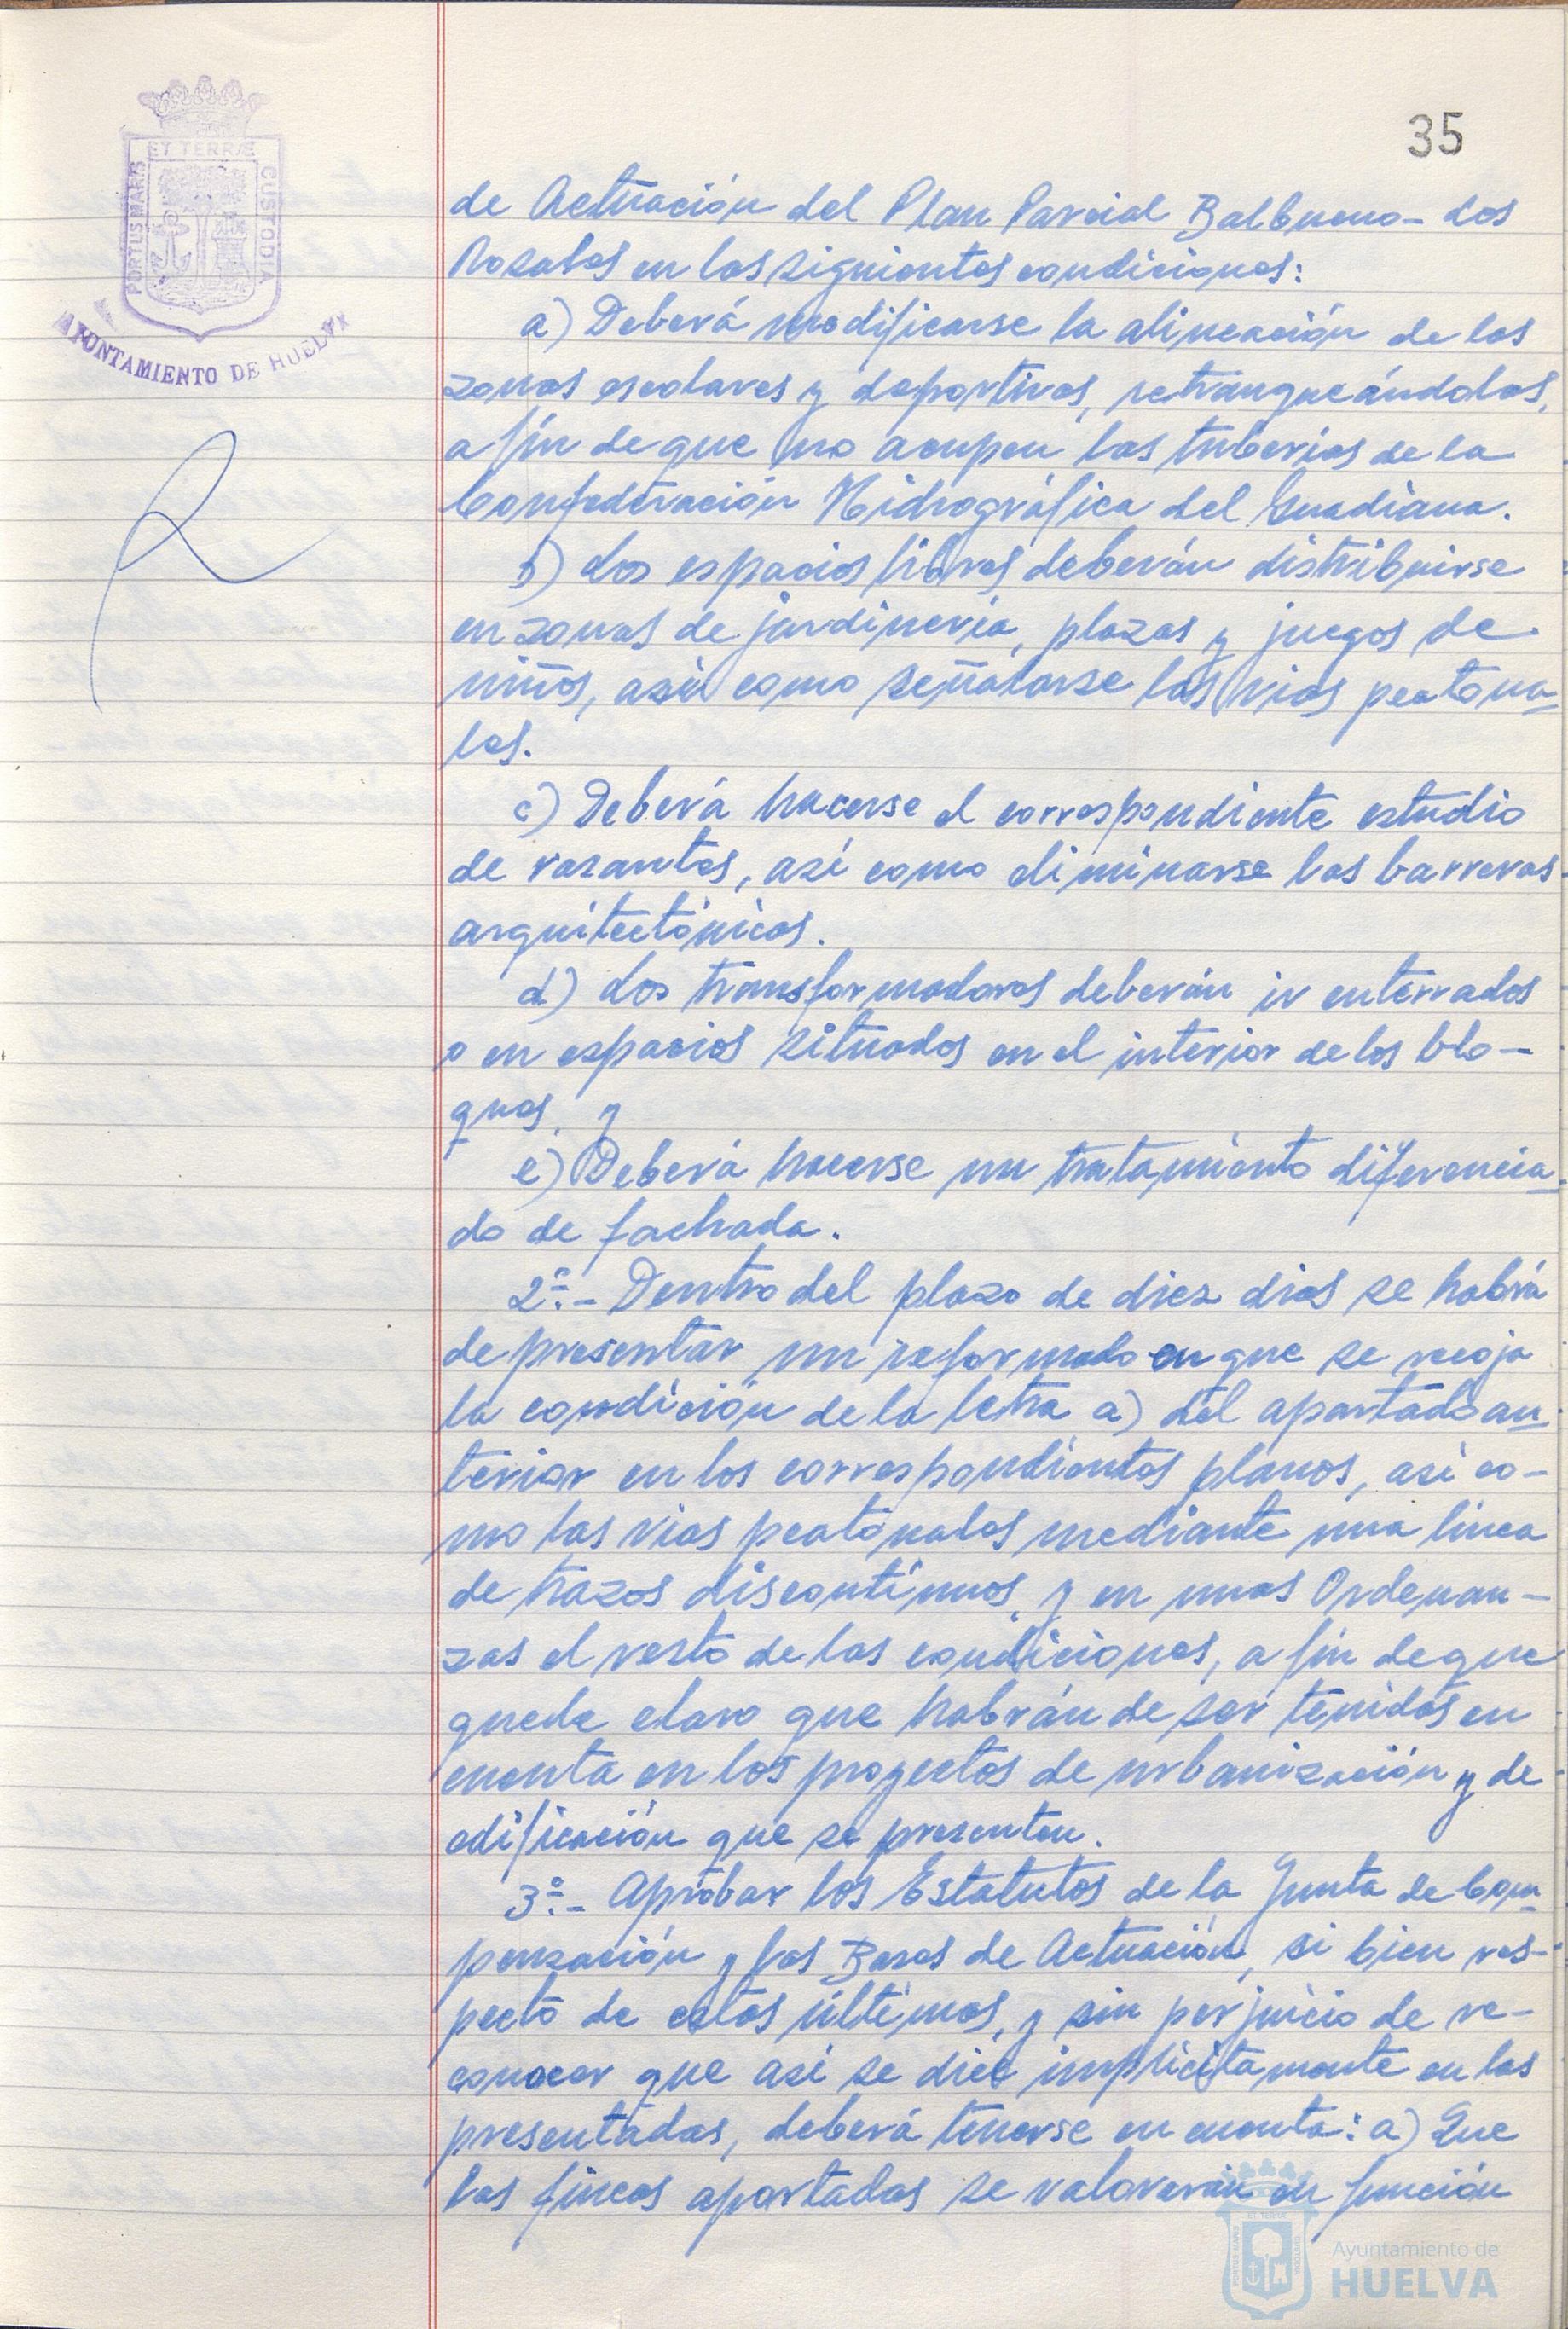 35
ET TERRÆ
PORTUS MARIS
CUSTODIA
AYUNTAMIENTO DE HUELVA
de Actuación del Plan Parcial Balbueno-Los
Rosales en las siguientes condiciones:
a) Deberá modificarse la alineación de las
zonas escolares y deportivas, retranqueándolas,
a fin de que no ocupen las tuberías de la
Confederación Hidrográfica del Guadiana.
b) Los espacios libres deberán distribuirse
en zonas de jardinería, plazas y juegos de
niños, así como señalarse las vías peatona-
les.
c) Deberá hacerse el correspondiente estudio
de rasantes, así como eliminarse las barreras
arquitectónicas.
d) Los transformadores deberán ir enterrados
o en espacios situados en el interior de los blo-
ques, y
e) Deberá hacerse un tratamiento diferencia-
do de fachada.
2º.- Dentro del plazo de diez días se habrá
de presentar un reformado en que se recoja
la condición de la letra a) del apartado an-
terior en los correspondientes planos, así co-
mo las vías peatonales mediante una línea
de trazos discontinuos, y en unas Ordenan-
zas el resto de las condiciones, a fin de que
quede claro que habrán de ser tenidas en
cuenta en los proyectos de urbanización y de
edificación que se presenten.
3º.- Aprobar los Estatutos de la Junta de Com-
pensación y las Bases de Actuación, si bien res-
pecto de estas últimas, y sin perjuicio de re-
conocer que así se dice implícitamente en las
presentadas, deberá tenerse en cuenta: a) Que
las fincas aportadas se valorarán en función
Ayuntamiento de
HUELVA